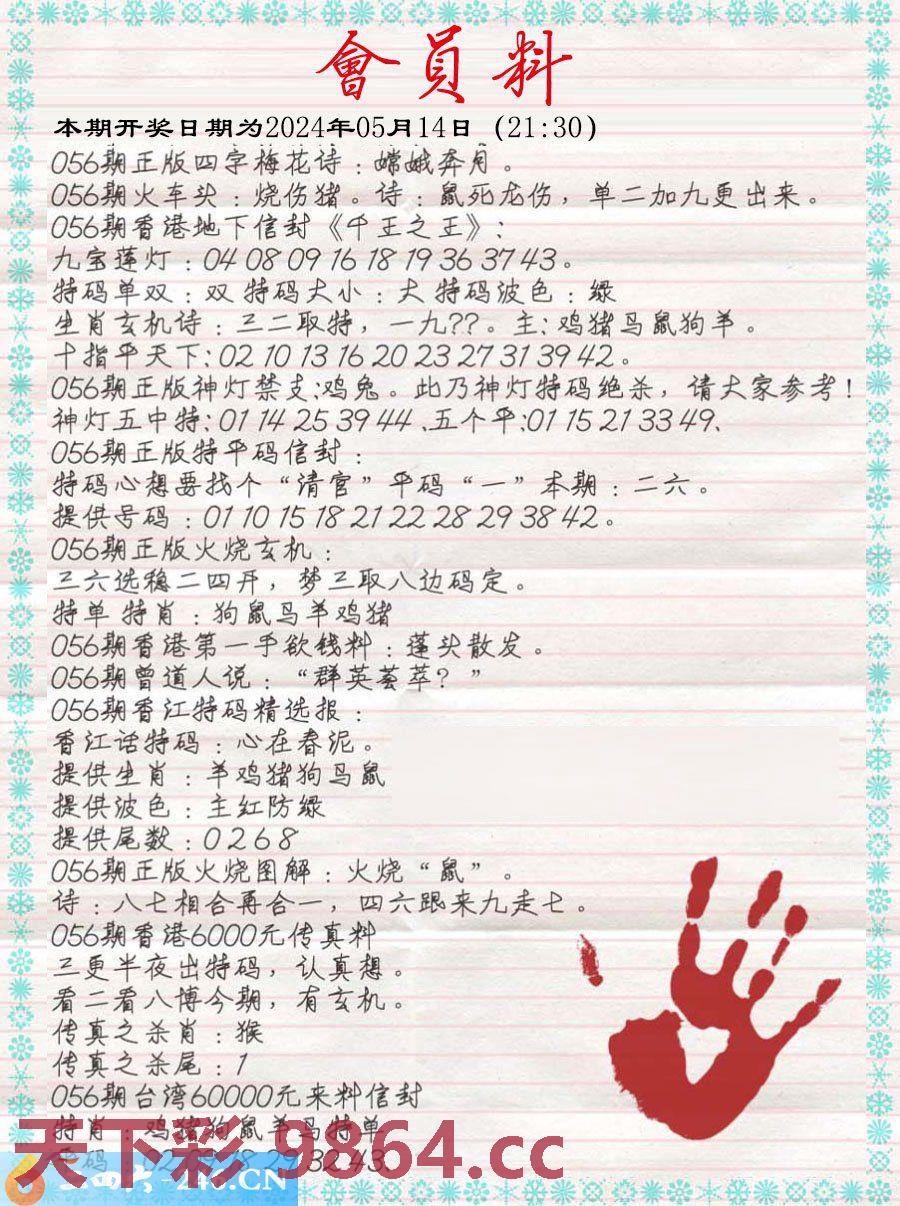 會員料
本期开奖日期为2024年05月14日（21:30）
056期正版四字梅花诗：嫦娥奔月。
056期火车头：烧伤猪。诗：鼠死龙伤，单二加九更出来。
056期香港地下信封《千王之王》：
九宝莲灯：04 08 09 16 18 19 36 37 43。
特码单双：双 特码大小：大 特码波色：绿
生肖玄机诗：三二取特，一九??。主：鸡猪马鼠狗羊。
十指平天下：02 10 13 16 20 23 27 31 39 42。
056期正版神灯禁支：鸡兔。此乃神灯特码绝杀，请大家参考！
神灯五中特：01 14 25 39 44 、五个平：01 15 21 33 49、
056期正版特平码信封：
特码心想要找个“清官”平码“一”本期：二六。
提供号码：01 10 15 18 21 22 28 29 38 42。
056期正版火烧玄机：
三六选稳二四开，梦三取八边码定。
特单 特肖：狗鼠马羊鸡猪
056期香港第一手欲钱料：蓬头散发。
056期曾道人说：“群英荟萃？”
056期香江特码精选报：
香江话特码：心在春泥。
提供生肖：羊鸡猪狗马鼠
提供波色：主红防绿
提供尾数：0 2 6 8
056期正版火烧图解：火烧“鼠”。
诗：八七相合再合一，四六跟来九走七。
056期香港6000元传真料
三更半夜出特码，认真想。
看二看八博今期，有玄机。
传真之杀肖：猴
传真之杀尾：1
056期台湾60000元来料信封
特肖：鸡猪狗鼠羊马特单
29 32 43.
天下彩 9864.cc
246.CN